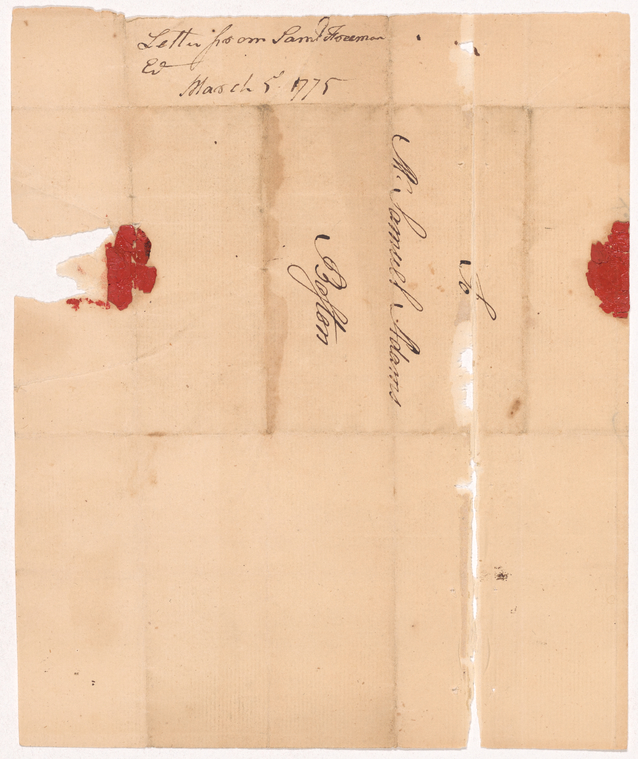 Letter from Saml Freeman
Ed
March 5. 1775
To
Mr. Samuel Adams
Boston